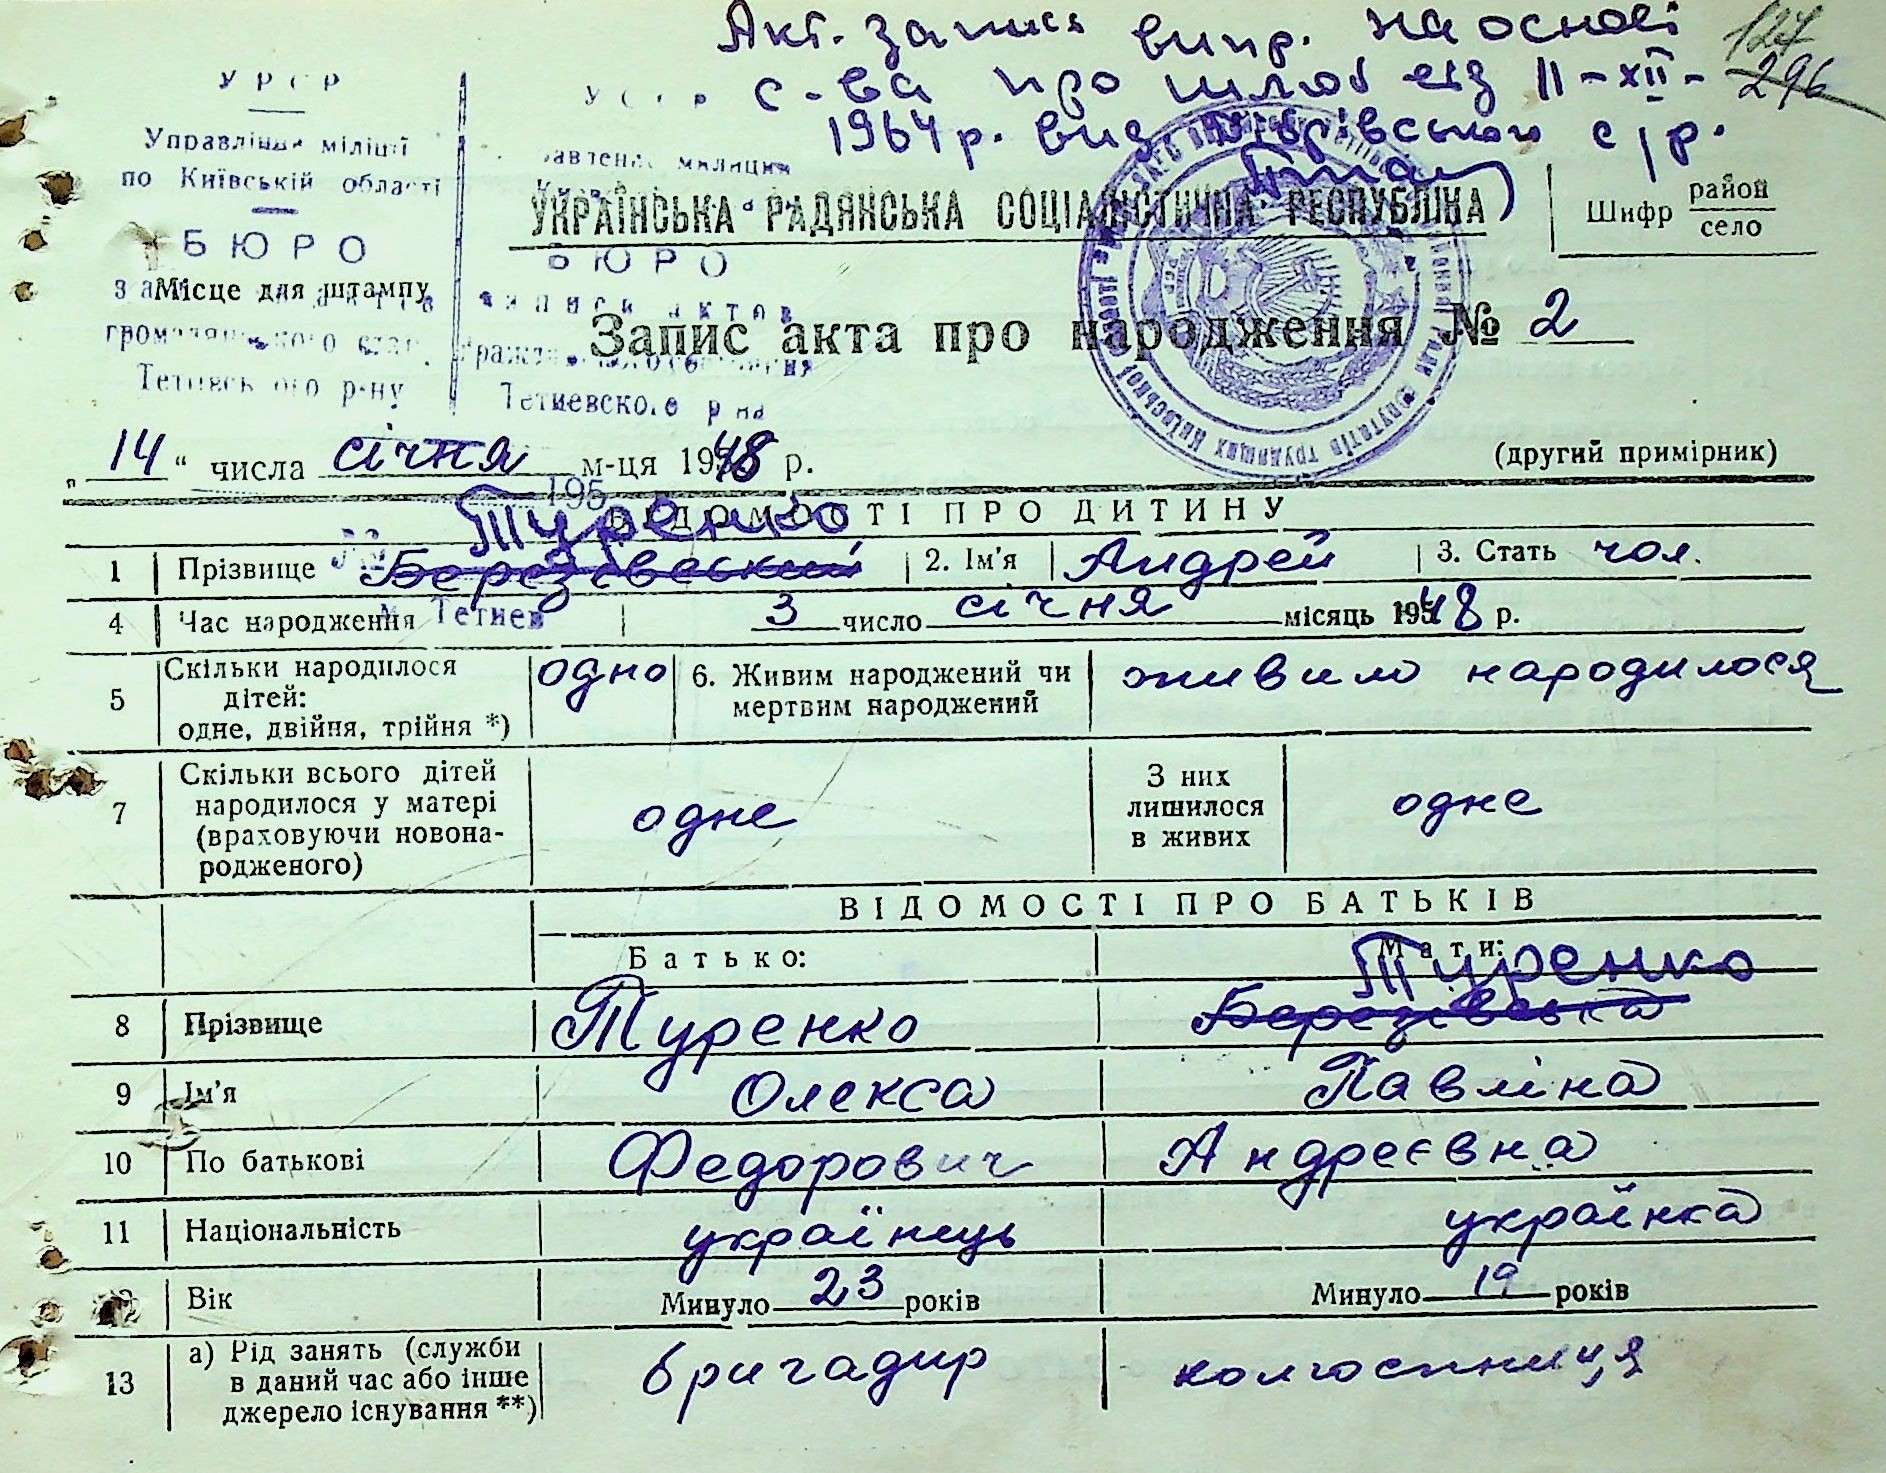 Акт. запись випр. на основі
с-ва про шлюб від 11-XII-
1964 р. вид. с/р.
127
296
УРСР
Управління міліції
по Київській області
БЮРО
громадянського стану
Тетіївського р-ну
УССР
милиции
БЮРО
записи актов
гражданского состояния
Тетиевского р-на
УКРАЇНСЬКА РАДЯНСЬКА СОЦІАЛІСТИЧНА РЕСПУБЛІКА
Шифр район
село
Місце для штампу
Запис акта про народження № 2
„ 14 “ числа січня м-ця 1948 р.
(другий примірник)
195
ВІДОМОСТІ ПРО ДИТИНУ
Туренко
1 Прізвище Березівський 2. Ім'я Андрей 3. Стать чол.
4 Час народження 3 число січня місяць 1948 р.
м. Тетиев
5 Скільки народилося дітей: одне, двійня, трійня *) одно 6. Живим народжений чи мертвим народжений живим народилося
7 Скільки всього дітей народилося у матері (враховуючи новонародженого) одне З них лишилося в живих одне
ВІДОМОСТІ ПРО БАТЬКІВ
Батько: Мати:
Туренко
8 Прізвище Туренко Березівська
9 Ім'я Олекса Павліна
10 По батькові Федорович Андреєвна
11 Національність українець українка
12 Вік Минуло 23 років Минуло 19 років
13 а) Рід занять (служби в даний час або інше джерело існування **) бригадир колгоспниця